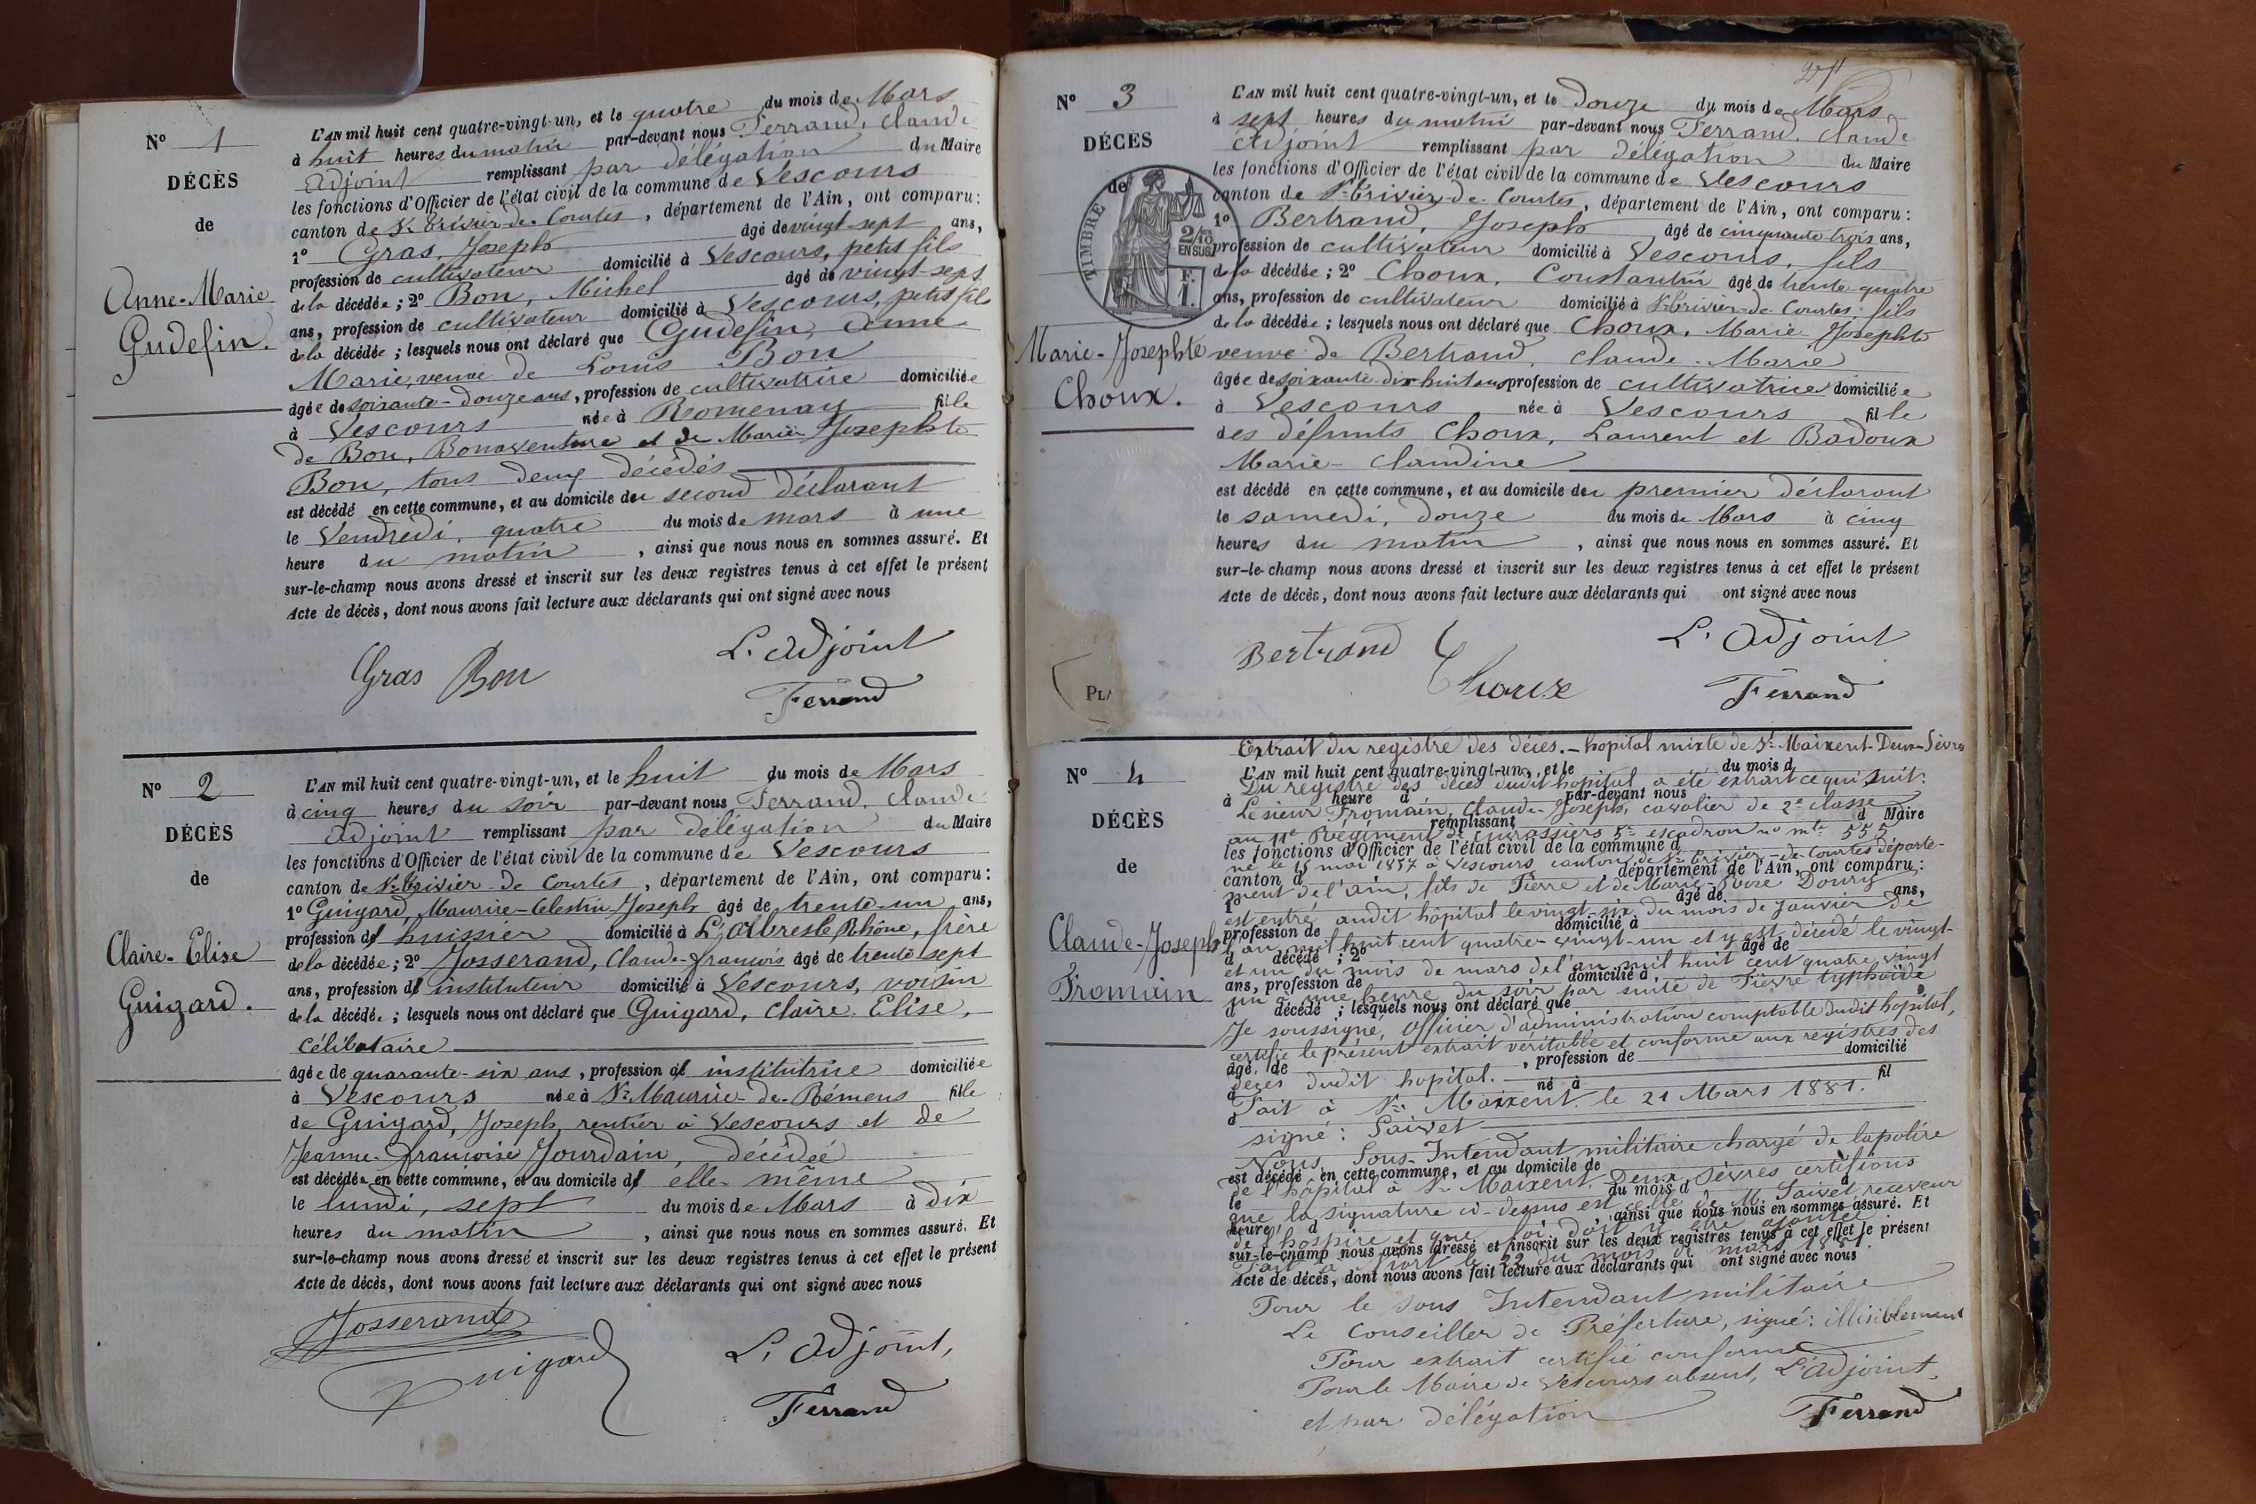 N° 1
DÉCÈS
de
Anne-Marie
Gudefin.
L'AN mil huit cent quatre-vingt-un, et le quatre du mois de Mars
à huit heures du matin par-devant nous Ferrand, Claude
adjoint remplissant par délégation du Maire
les fonctions d'Officier de l'état civil de la commune de Vescours
canton de St Trivier-de-Courtes, département de l'Ain, ont comparu:
1° Gras, Joseph âgé de vingt-sept ans,
profession de cultivateur domicilié à Vescours, petit fils
de la décédée; 2° Bon, Michel âgé de vingt-sept
ans, profession de cultivateur domicilié à Vescours, petit fils
de la décédée; lesquels nous ont déclaré que Gudefin, Anne
Marie, veuve de Louis Bon
âgée de soixante-douze ans, profession de cultivatrice domiciliée
à Vescours née à Romenay fille
de Bon, Bonaventure et de Marie Josephte
Bon, tous deux décédés
est décédé en cette commune, et au domicile du second déclarant
le Vendredi, quatre du mois de mars à une
heure du matin, ainsi que nous nous en sommes assuré. Et
sur-le-champ nous avons dressé et inscrit sur les deux registres tenus à cet effet le présent
Acte de décès, dont nous avons fait lecture aux déclarants qui ont signé avec nous
Gras Bon L'adjoint
Ferrand
N° 2
DÉCÈS
de
Claire-Elise
Guigard.
L'AN mil huit cent quatre-vingt-un, et le huit du mois de Mars
à cinq heures du soir par-devant nous Ferrand, Claude
adjoint remplissant par délégation du Maire
les fonctions d'Officier de l'état civil de la commune de Vescours
canton de St Trivier-de-Courtes, département de l'Ain, ont comparu:
1° Guigard, Maurice-Celestin Joseph âgé de trente-un ans,
profession d'huissier domicilié à L'Albresle Rhône, frère
de la décédée; 2° Josserand, Claude-François âgé de trente sept
ans, profession d'instituteur domicilié à Vescours, voisin
de la décédée; lesquels nous ont déclaré que Guigard, Claire Elise,
célibataire
âgée de quarante-six ans, profession d'institutrice domiciliée
à Vescours née à St Maurice-de-Rémens fille
de Guigard, Joseph, rentier à Vescours et de
Jeanne-Françoise Jourdain, décédée
est décédée en cette commune, et au domicile d'elle-même
le lundi, sept du mois de Mars à dix
heures du matin, ainsi que nous nous en sommes assuré. Et
sur-le-champ nous avons dressé et inscrit sur les deux registres tenus à cet effet le présent
Acte de décès, dont nous avons fait lecture aux déclarants qui ont signé avec nous
Josserand
Guigard L'adjoint,
Ferrand
N° 3
DÉCÈS
de
TIMBRE
2/10
EN SUS
F.
1.
Marie-Josephte
Choux.
L'AN mil huit cent quatre-vingt-un, et le douze du mois de Mars
à sept heures du matin par-devant nous Ferrand, Claude
adjoint remplissant par délégation du Maire
les fonctions d'Officier de l'état civil de la commune de Vescours
canton de St Trivier-de-Courtes, département de l'Ain, ont comparu:
1° Bertrand, Joseph âgé de cinquante trois ans,
profession de cultivateur domicilié à Vescours, fils
de la décédée; 2° Choux, Constantin âgé de trente quatre
ans, profession de cultivateur domicilié à St Trivier-de-Courtes, fils
de la décédée; lesquels nous ont déclaré que Choux, Marie-Josephte
veuve de Bertrand, Claude-Marie
âgée de soixante-dix huit ans profession de cultivatrice domiciliée
à Vescours née à Vescours fille
des défunts Choux, Laurent et Badoux
Marie-Claudine
est décédé en cette commune, et au domicile du premier déclarant
le samedi, douze du mois de Mars à cinq
heures du matin, ainsi que nous nous en sommes assuré. Et
sur-le-champ nous avons dressé et inscrit sur les deux registres tenus à cet effet le présent
Acte de décès, dont nous avons fait lecture aux déclarants qui ont signé avec nous
Bertrand Choux L'adjoint
Ferrand
PL
N° 4
DÉCÈS
de
Claude-Joseph
Fromain
Extrait du registre des décès. - hopital mixte de St Maixent-Deux-Sèvres
L'AN mil huit cent quatre-vingt-un, et le du mois d
Du registre des décès dudit hopital a été extrait ce qui suit:
à heure d par-devant nous
Le sieur Fromain, Claude-Joseph, cavalier de 2e classe
remplissant d Maire
au 11e Régiment de cuirassiers 5e escadron no mle 555
les fonctions d'Officier de l'état civil de la commune d
né le 15 mai 1857 à Vescours canton de St Trivier-de-Courtes départe-
canton d département de l'Ain, ont comparu:
ment de l'ain, fils de Pierre et de Marie-Louise Doury
1° âgé de ans,
est entré audit hôpital le vingt-six du mois de Janvier de
profession de domicilié à
l'an mil huit cent quatre-vingt-un et y est décédé le vingt-
d décédé; 2° âgé de
et un du mois de mars de l'an mil huit cent quatre vingt
ans, profession de domicilié à
un à une heure du soir par suite de Fièvre typhoïde
d décédé; lesquels nous ont déclaré que
Je soussigné, Officier d'administration comptable dudit hopital,
certifie le présent extrait véritable et conforme aux registres des
âgé de, profession de domicilié
décès dudit hopital.
à né à fil
Fait à St Maixent le 21 Mars 1881.
d
signé: Saivet
Nous, Sous-Intendant militaire chargé de la police
est décédé en cette commune, et au domicile de
de l'hôpital à St Maixent Deux Sèvres certifions
le du mois d à
que la signature ci-dessus est celle de M. Saivet, receveur
heure d, ainsi que nous nous en sommes assuré. Et
de l'hospice et que foi doit y être ajoutée
sur-le-champ nous avons dressé et inscrit sur les deux registres tenus à cet effet le présent
Fait à Niort le 22 du mois de mars 1881
Acte de décès, dont nous avons fait lecture aux déclarants qui ont signé avec nous
Pour le sous Intendant militaire
Le Conseiller de Préfecture, signé: illisiblement
Pour extrait certifié conforme
Pour le Maire de Vescours absent, L'adjoint
et par délégation Ferrand